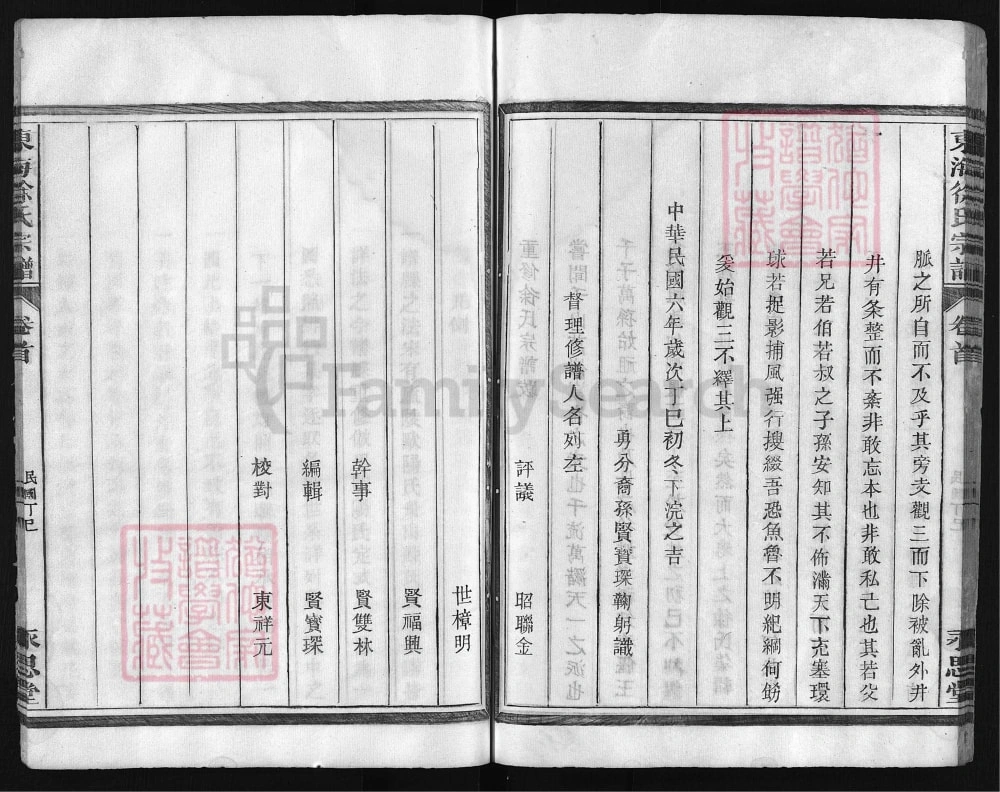 東海徐氏宗譜 卷首 永思堂
脈之所自而不及乎其旁支觀三而下除被亂外井
井有条整而不紊非敢忘本也非敢私亡也其若父
若兄若伯若叔之子孫安知其不佈滿天下充塞環
球若捉影捕風强行搜綴吾恐魚魯不明紀綱何飭
爰始觀三不繹其上
中華民國六年歲次丁巳初冬下浣之吉
勇分裔孫賢寶琛鞠躬識
督理修譜人名列左
評議 昭聯金
世樟明
賢福興
幹事 賢雙林
編輯 賢寶琛
校對 東祥元
東海徐氏宗譜 卷首 民國丁巳 永思堂
FamilySearch